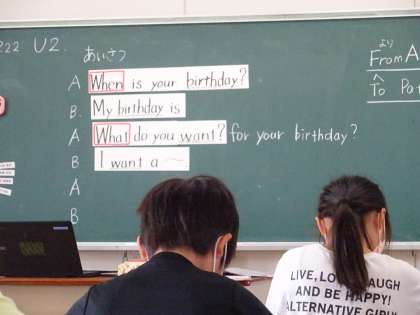 222 U2.
あいさつ
A When is your birthday?
B. My birthday is
A What do you want? for your birthday?
B I want a ～
A
B
より
From A
To
LIVE, LAUGH
AND BE HAPPY!
ALTERNATIVE